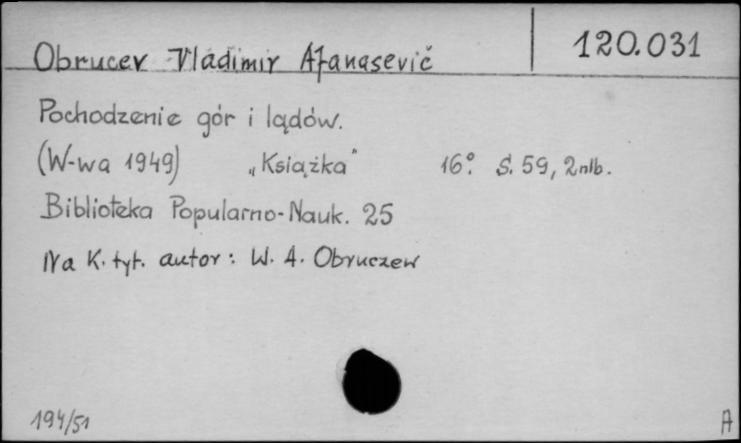 Obrucev Vladimir Afanasevič 120.031
Pochodzenie gór i lądów.
(W-wa 1949) „Książka" 16°. S. 59, 2nlb.
Biblioteka Popularno-Nauk. 25
Na K. tyt. autor: W. A. Obruczew
194/51 A